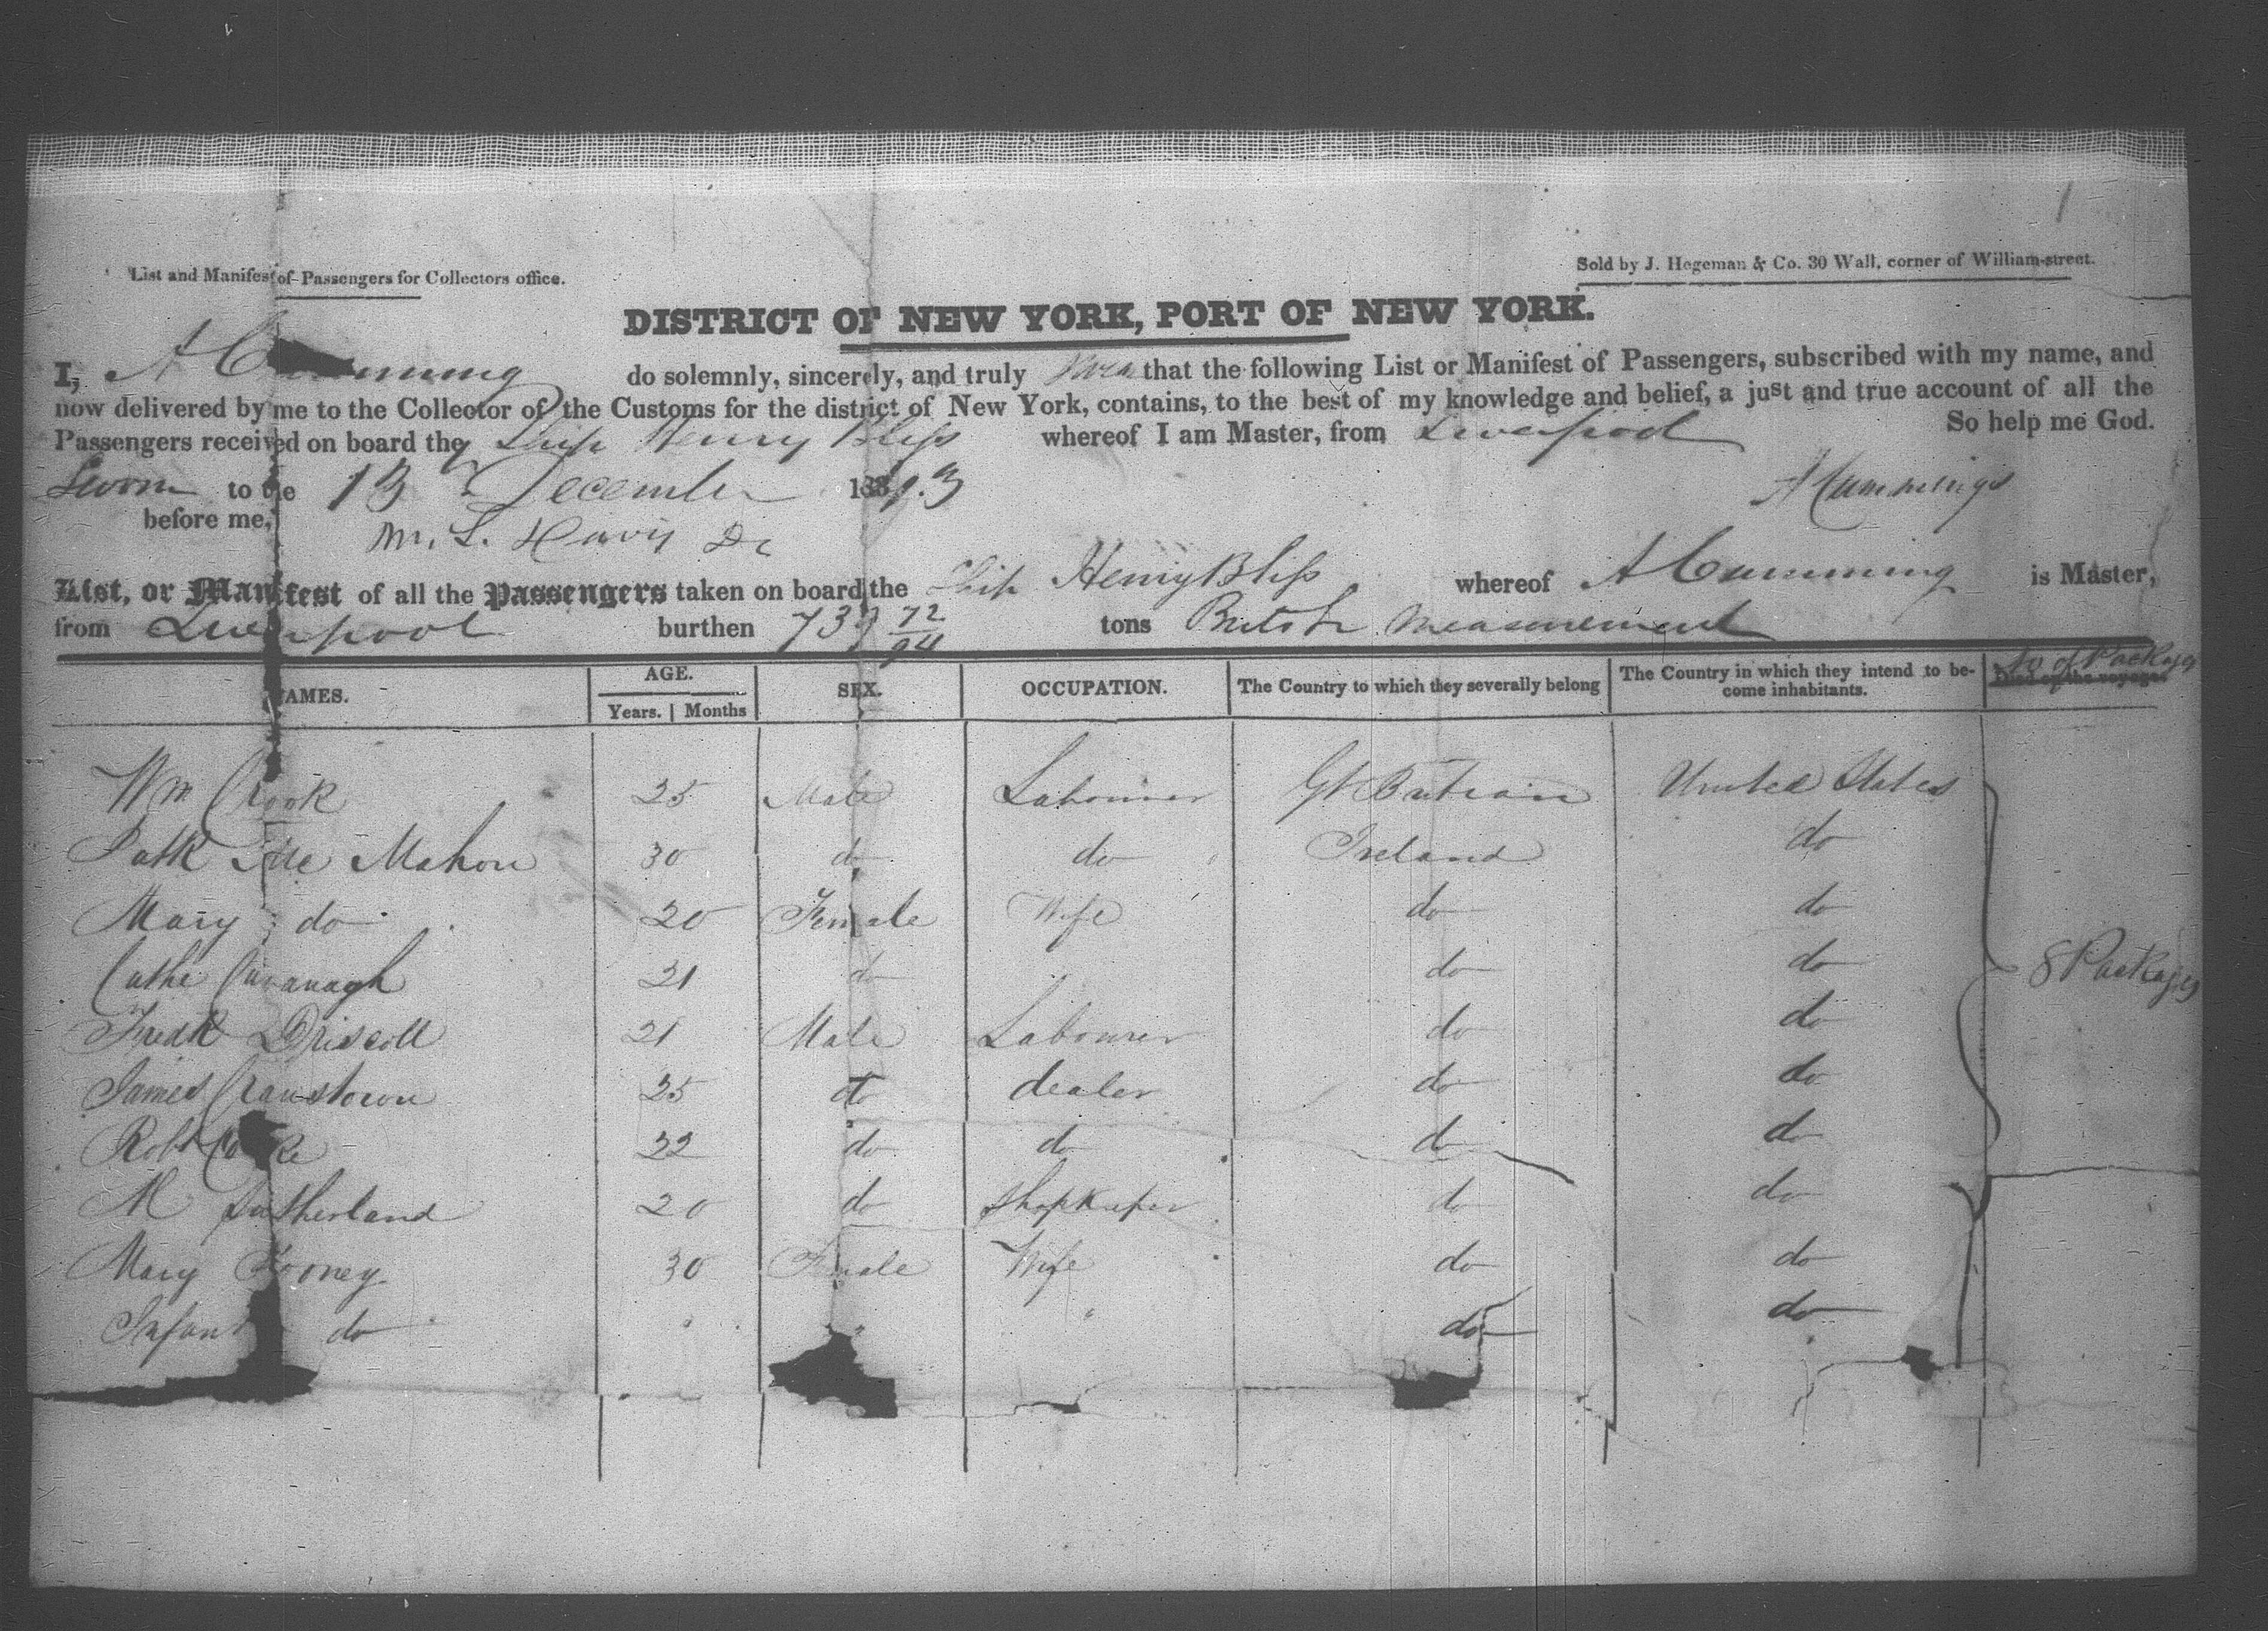 1
List and Manifest of Passengers for Collectors office.
Sold by J. Hegeman & Co. 30 Wall, corner of William-street.
DISTRICT OF NEW YORK, PORT OF NEW YORK.
I, A Cumming do solemnly, sincerely, and truly that the following List or Manifest of Passengers, subscribed with my name, and
now delivered by me to the Collector of the Customs for the district of New York, contains, to the best of my knowledge and belief, a just and true account of all the
Passengers received on board the Ship Henry Bliss whereof I am Master, from Liverpool So help me God.
Sworn to the 13 December 1843 A Cummings
before me, M. L. Davis
List, or Manifest of all the Passengers taken on board the Ship Henry Bliss whereof A Cumming is Master,
from Liverpool burthen 739 72/94 tons British Measurement
NAMES. AGE. Years. Months SEX. OCCUPATION. The Country to which they severally belong The Country in which they intend to become inhabitants. No of Packages Died on the voyage
Wm Crook 25 Male Labourer Gt Britain United States
Patk Mc Mahon 30 do do Ireland do
Mary do 20 Female Wife do do
Cathe Cavanagh 21 do do do 8 Packages
Fredk Driscoll 21 Male Labourer do do
James Cranstown 25 do dealer do do
Robt 22 do do do do
M Sutherland 20 do Shopkeeper do do
Mary 30 Female Wife do do
Infant do " " " do do